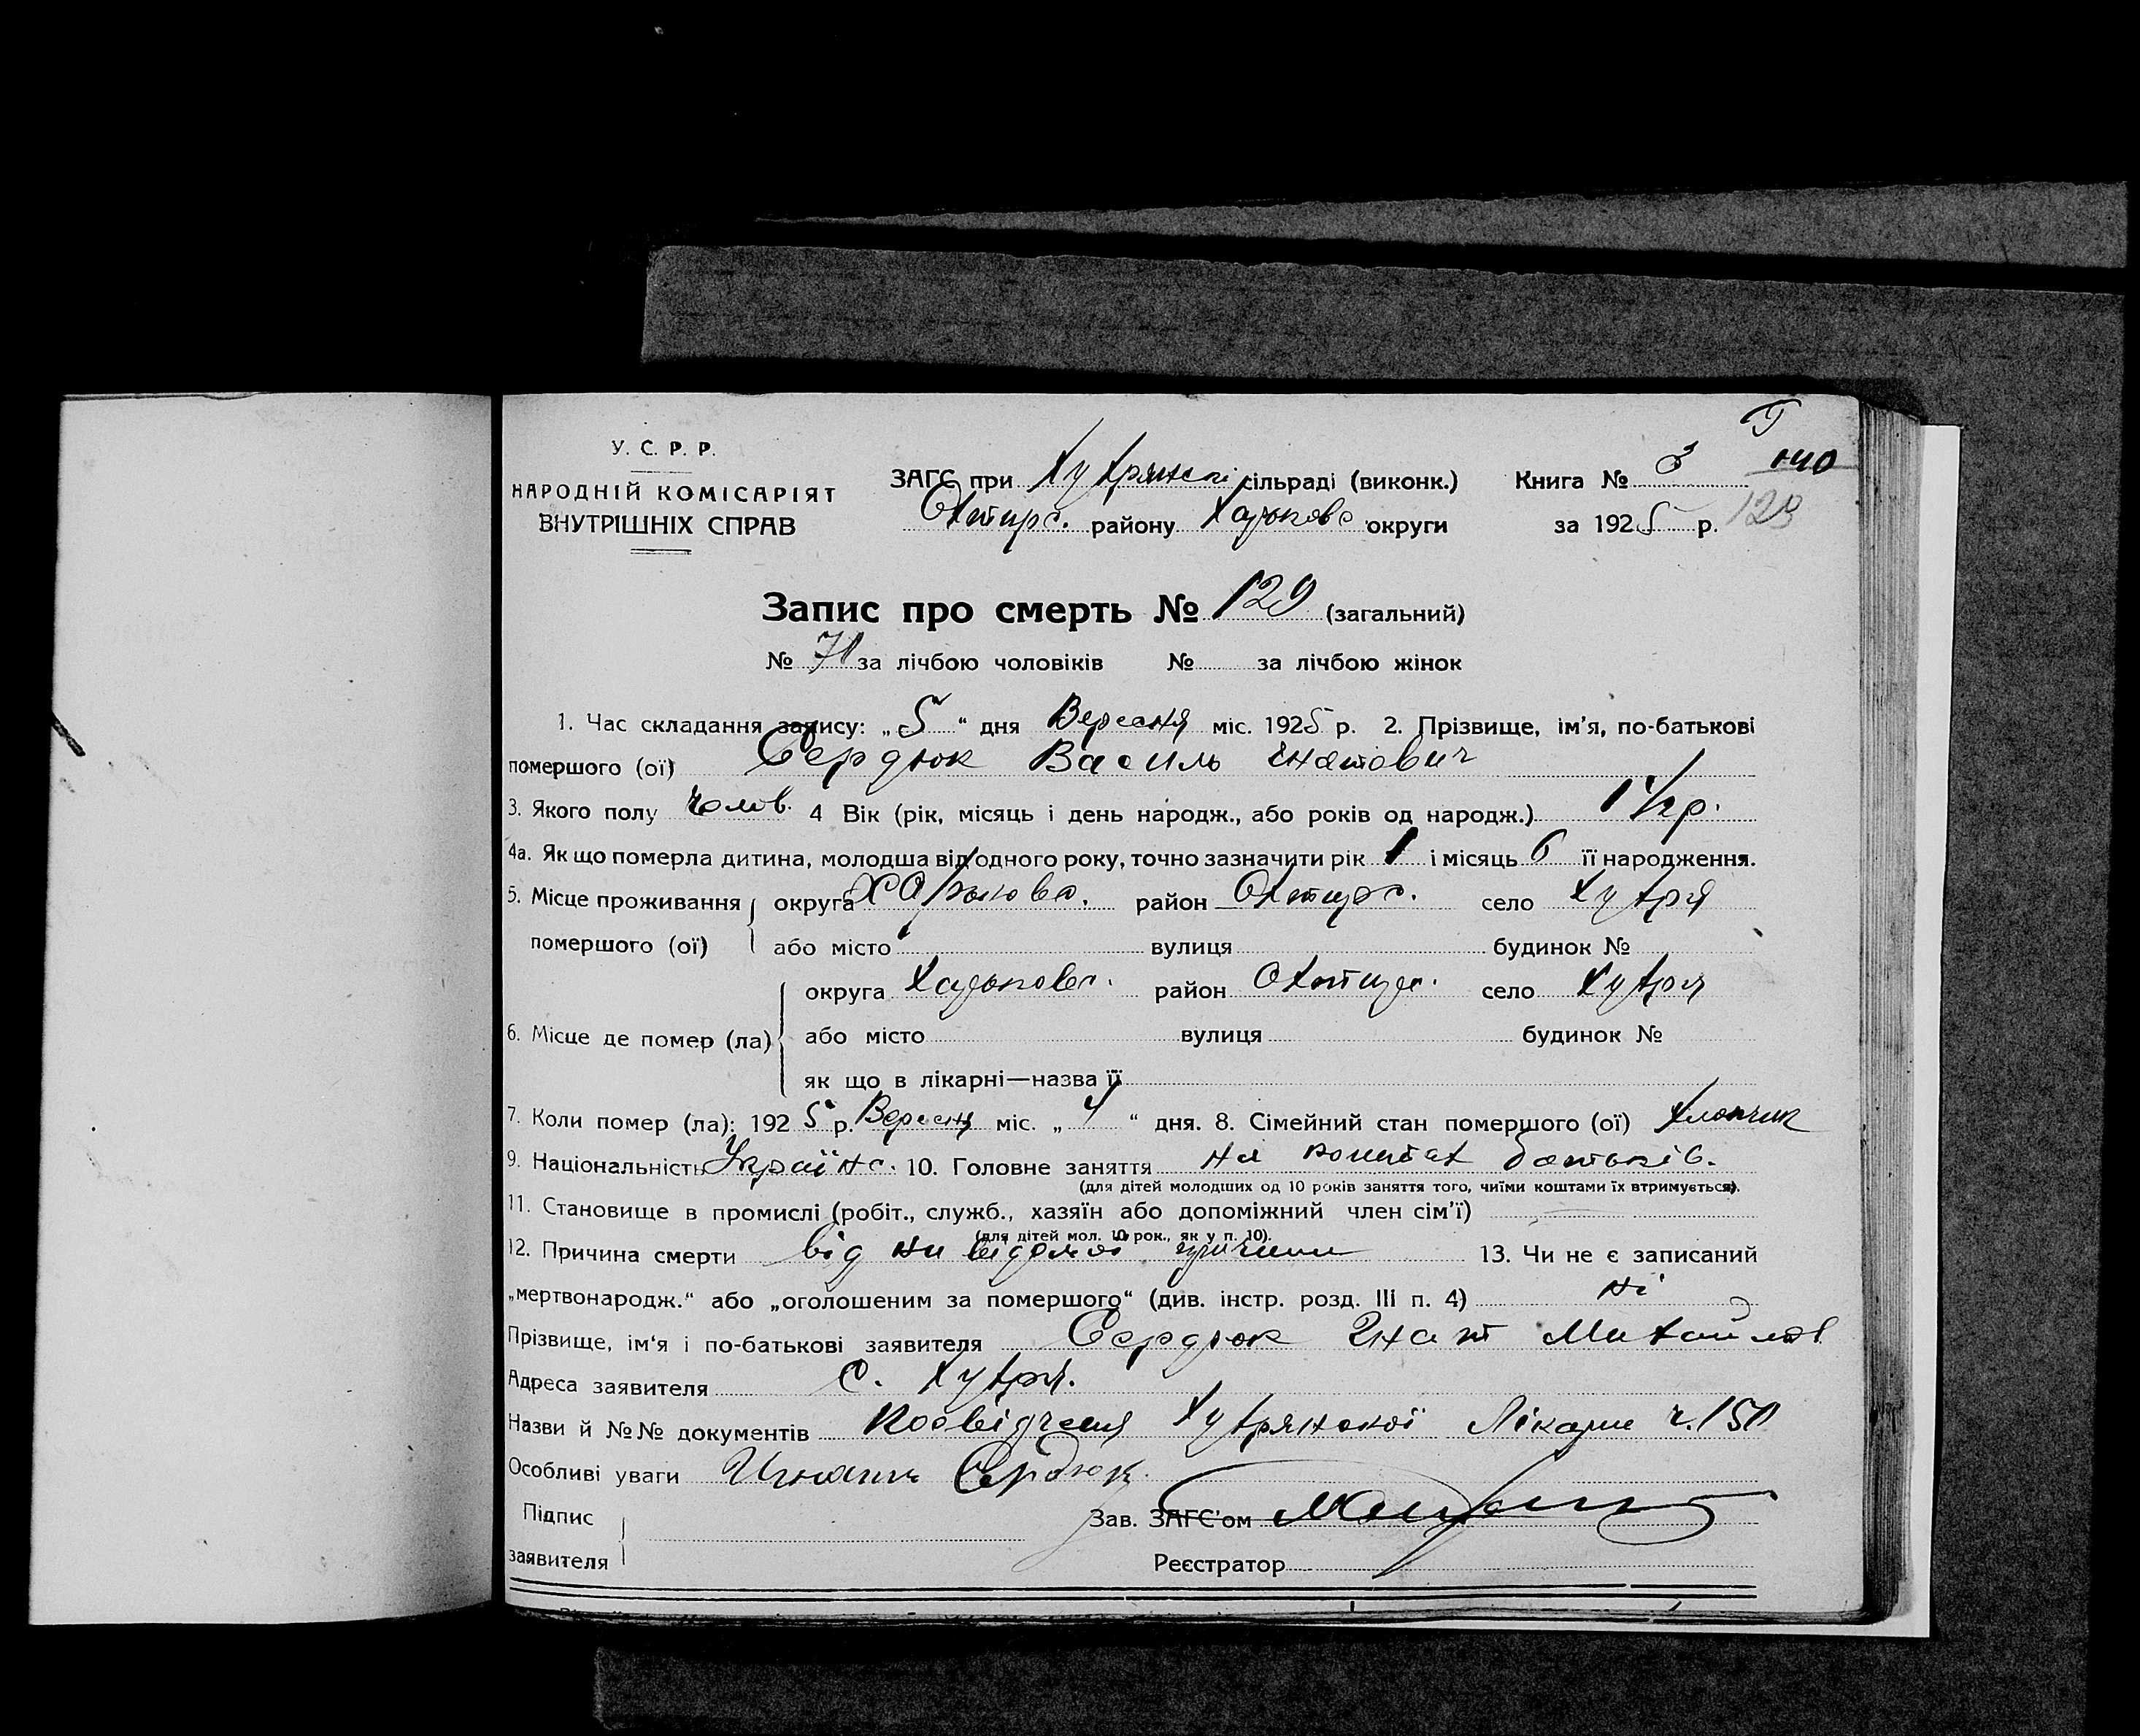 У. С. Р. Р.
НАРОДНІЙ КОМІСАРІЯТ
ВНУТРІШНІХ СПРАВ
ЗАГС при Хухрянскі сільраді (виконк.)
Охтирс. району Харькове округи
Книга № 3 140
за 1925 р. 129
Запис про смерть № 129 (загальний)
№ 71 за лічбою чоловіків № за лічбою жінок
1. Час складання запису: „5“ дня Вересня міс. 1925 р. 2. Прізвище, ім'я, по-батькові
помершого (ої) Сердюк Василь Гнатович
3. Якого полу чолов. 4 Вік (рік, місяць і день народж., або років од народж.) 1 1/2 р.
4а. Як що померла дитина, молодша від одного року, точно зазначити рік 1 і місяць 6 її народження.
5. Місце проживання округа Харькове. район Охтирс. село Хухря
помершого (ої) або місто вулиця будинок №
округа Харькове. район Охтирс. село Хухря
6. Місце де помер (ла) або місто вулиця будинок №
як що в лікарні—назва її
7. Коли помер (ла): 1925 р. Вересня міс. „4“ дня. 8. Сімейний стан помершого (ої) хлопчик
9. Національність Українс. 10. Головне заняття на коштах батьків.
(для дітей молодших од 10 років заняття того, чиїми коштами їх втримується).
11. Становище в промислі (робіт., служб., хазяїн або допоміжний член сім'ї)
(для дітей мол. 10 рок., як у п. 10).
12. Причина смерти від не відомої причини 13. Чи не є записаний
„мертвонародж.“ або „оголошеним за помершого“ (див. інстр. розд. III п. 4) ні
Прізвище, ім'я і по-батькові заявителя Сердюк Гнат Михайлов
Адреса заявителя С. Хухря.
Назви й №№ документів Посвідчення Хухрянської Лікарні ч. 151
Особливі уваги Игнатъ Сердюк.
Підпис
заявителя
Зав. ЗАГС'ом
Реєстратор